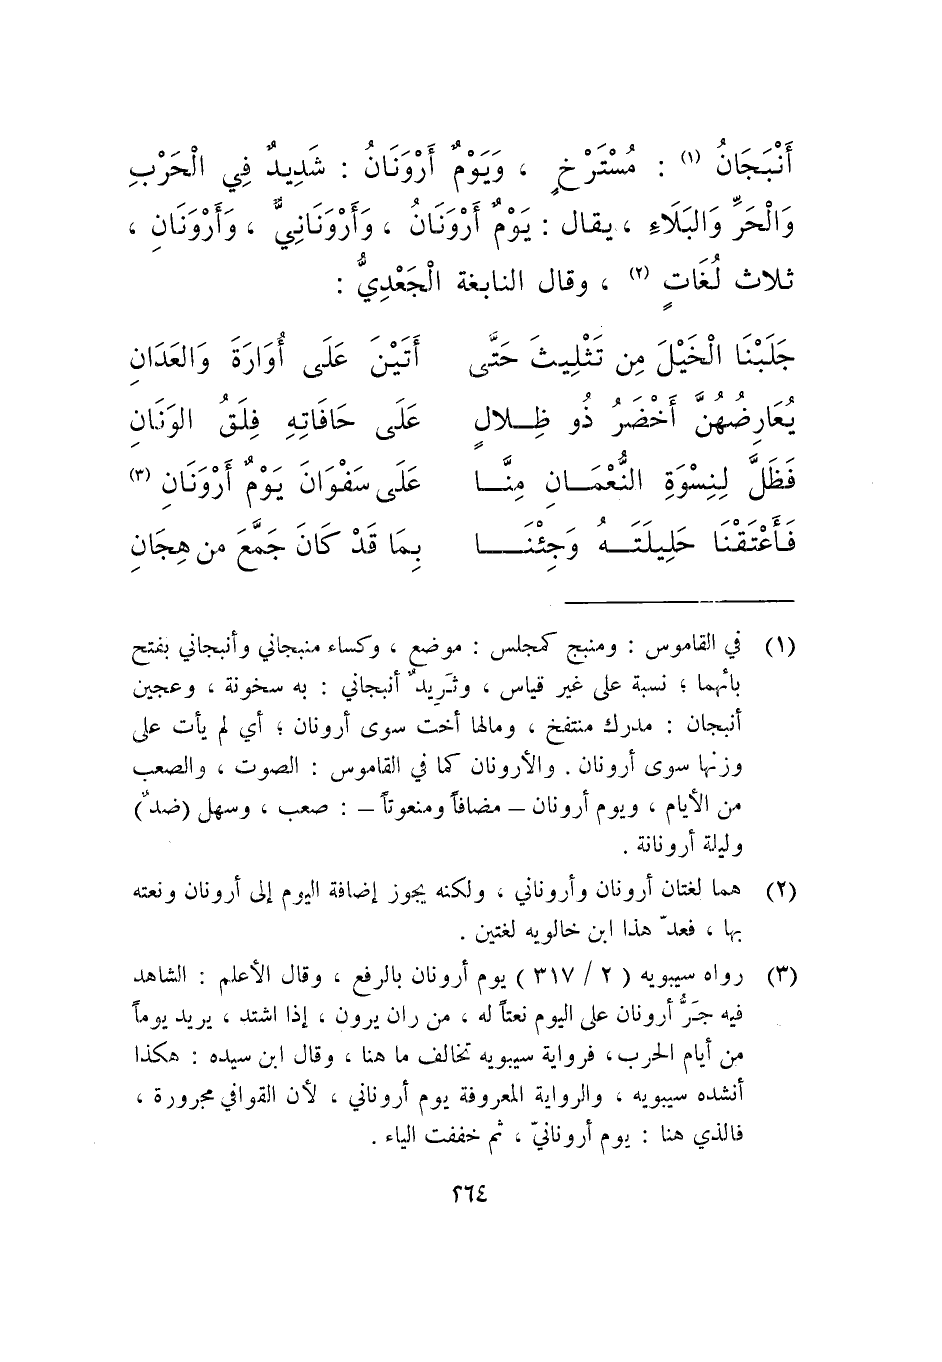 أَنْبَجَانُ (١) : مُسْتَرْخٍ ، وَيَوْمٌ أَرْوَنَانُ : شَدِيدٌ فِي الْحَرْبِ
وَالْحَرِّ وَالبَلَاءِ ، يقال : يَوْمٌ أَرْوَنَانُ ، وَأَرْوَنَانِيٌّ ، وَأَرْوَنَانِ ،
ثلاث لُغَاتٍ (٢) ، وقال النابغة الْجَعْدِيُّ :
جَلَبْنَا الْخَيْلَ مِن تَثْلِيثَ حَتَّى أَتَيْنَ عَلَى أُوَارَةَ وَالعَدَانِ
يُعَارِضُهُنَّ أَخْضَرُ ذُو ظِــلالٍ عَلَى حَافَاتِهِ فِلَقُ الوَنَانِ
فَظَلَّ لِنِسْوَةِ النُّعْمَــانِ مِنَّــا عَلَى سَفْوَانَ يَوْمٌ أَرْوَنَانِ (٣)
فَأَعْتَقْنَا حَلِيلَتَــهُ وَجِئْنَــا بِمَا قَدْ كَانَ جَمَّعَ من هِجَانِ
(١) في القاموس : ومنبج كمجلس : موضع ، وكساء منبجاني وأنبجاني بفتح
بائهما ؛ نسبة على غير قياس ، وثَريدٌ أنبجاني : به سخونة ، وعجين
أنبجان : مدرك منتفخ ، ومالها أخت سوى أرونان ؛ أي لم يأت على
وزنها سوى أرونان . والأرونان كما في القاموس : الصوت ، والصعب
من الأيام ، ويوم أرونان – مضافاً ومنعوتاً – : صعب ، وسهل (ضدٌ)
وليلة أرونانة .
(٢) هما لغتان أرونان وأروناني ، ولكنه يجوز إضافة اليوم إلى أرونان ونعته
بها ، فعدّ هذا ابن خالويه لغتين .
(٣) رواه سيبويه ( ٢ / ٣١٧ ) يوم أرونان بالرفع ، وقال الأعلم : الشاهد
فيه جَرُّ أرونان على اليوم نعتاً له ، من ران يرون ، إذا اشتد ، يريد يوماً
من أيام الحرب، فرواية سيبويه تخالف ما هنا ، وقال ابن سيده : هكذا
أنشده سيبويه ، والرواية المعروفة يوم أروناني ، لأن القوافي مجرورة ،
فالذي هنا : يوم أرونانيّ ، ثم خففت الياء .
٢٦٤